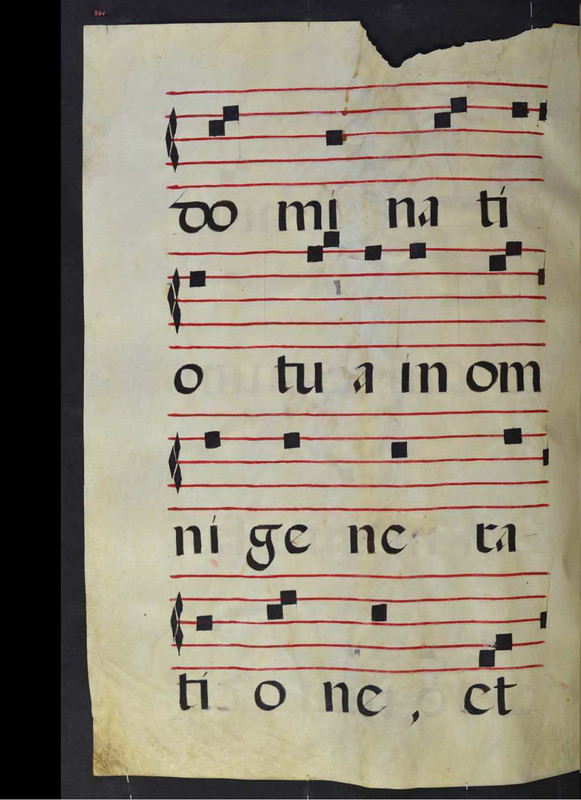 56v
do mi na ti
o tu a in om
ni ge ne ra
ti o ne, et